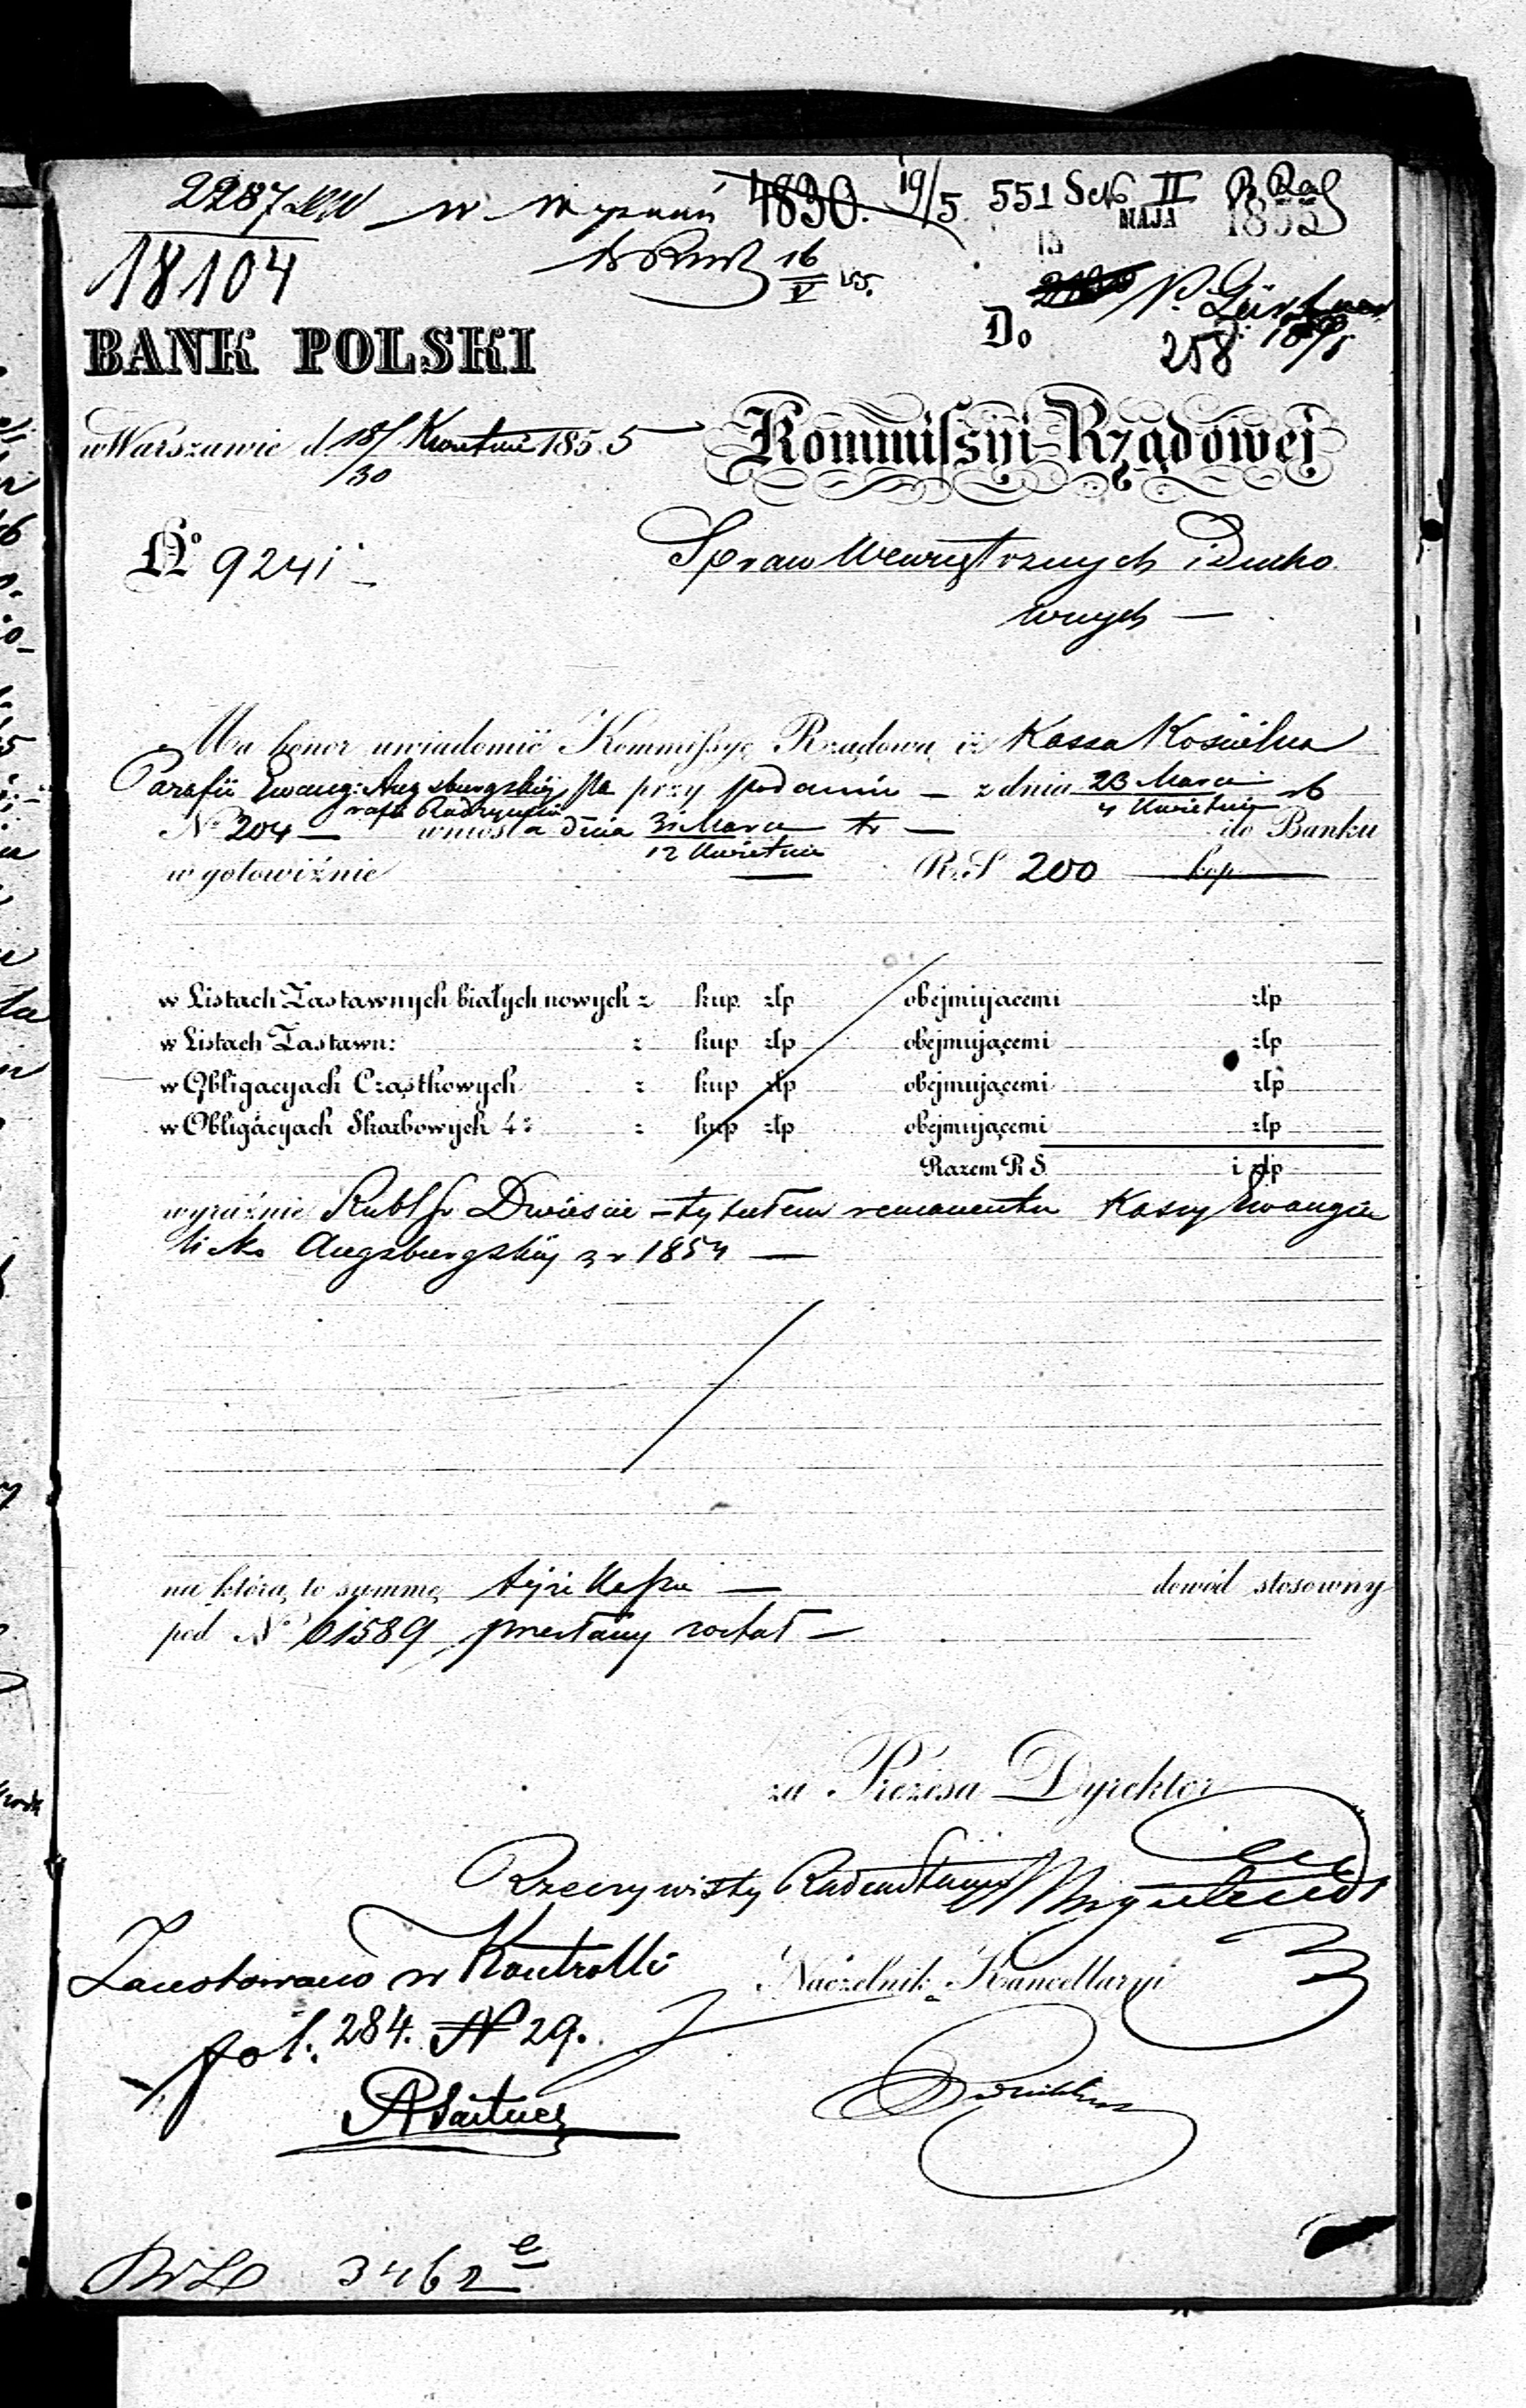 2287
18104
4830. 19/5 551 Sek II
MAJA 1855
13
16/V 55.
Do
258
BANK POLSKI
w Warszawie d 18/30 Kwietnia 1855
Kommissyi Rządowej
No 9241
Spraw Wewnętrznych i Ducho
wnych —
Ma honor uwiadomić Kommissyę Rządową iż Kassa Kościelna
Parafii Ewang: Augsburgskiej przy podaniu — z dnia 23 Marca / 4 Kwietnia rb
No 204 — wniosła dnia 31 Marca / 12 Kwietnia tr — do Banku
w gotowiźnie R.S 200 kop —
w Listach Zastawnych białych nowych z kup złp obejmującemi złp
w Listach Zastawn: z kup złp obejmującemi złp
w Obligacyach Cząstkowych z kup złp obejmującemi złp
w Obligacyach Skarbowych 4% z kup złp obejmującemi złp
Razem R S. i złp
wyraźnie Rubl sr Dwieście – tytułem remanentu Kassy Ewangie
licko Augsburgskiej z r 1854 —
na którą to summę tejże Kassie — dowód stosowny
pod No 61589 przesłany został —
za Prezesa Dyrektor
Rzeczywisty Radca Stanu
Zanotowano w Kontrolli
Naczelnik Kancellaryi
fol. 284. N 29.
3462 e